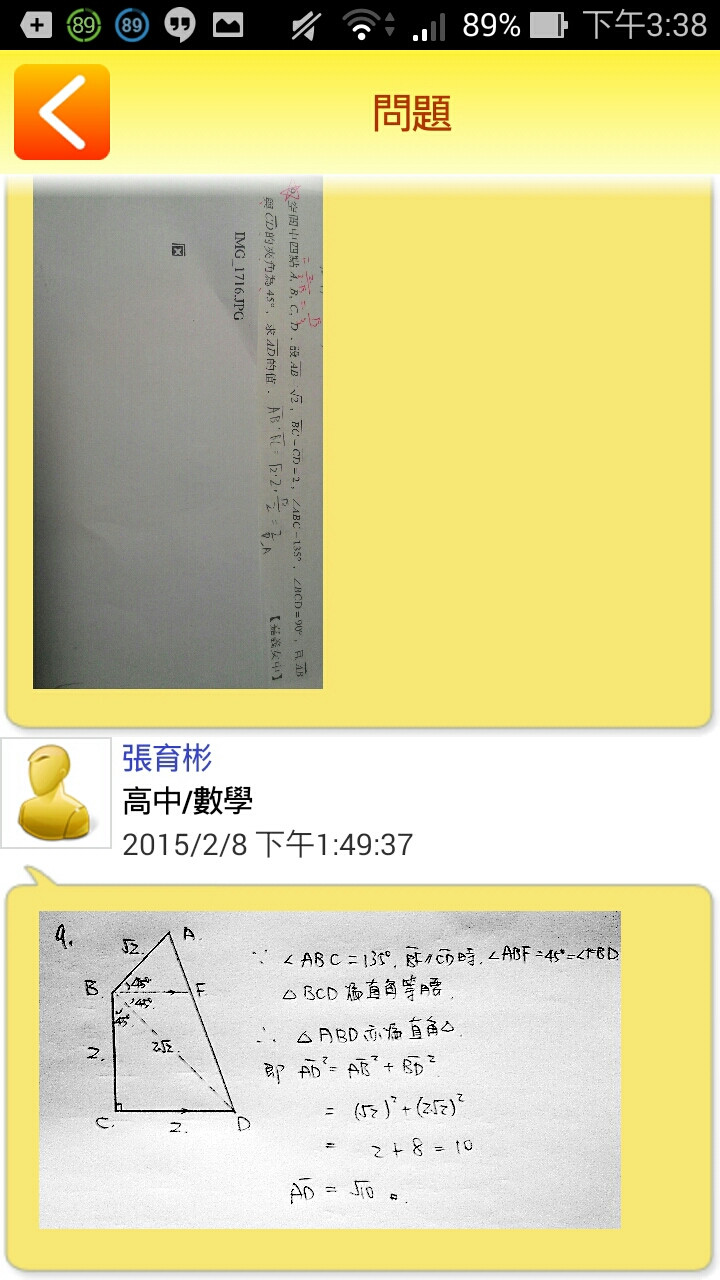 89 89 89% 下午3:38
問題
空間中四點 A, B, C, D,設 AB=√2, BC=CD=2, ∠ABC=135°, ∠BCD=90°, 且 AB
與 CD 的夾角為 45°, 求 AD 的值.
【嘉義女中】
IMG_1716.JPG
張育彬
高中/數學
2015/2/8 下午1:49:37
9.
√2 A.
B 45° F
45°
45°
2. 2√2.
C. 2. D
∵ ∠ABC=135°, BF//CD時, ∠ABF=45°=∠FBD
△BCD為直角等腰.
∴ △ABD亦為直角△.
即 AD²=AB²+BD²
= (√2)²+(2√2)²
= 2+8=10
AD = √10